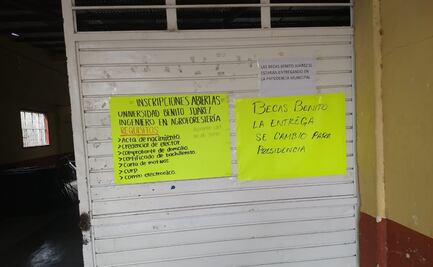 INSCRIPCIONES ABIERTAS
UNIVERSIDAD BENITO JUAREZ
INGENIERO EN AGROFORESTERÍA
REQUISITOS
> Acta de nacimiento.
> Credencial de elector.
> comprobante de domicilio.
> certificado de bachillerato.
> Carta de motivos
> CURP
> correo electronico.
LAS BECAS BENITO JUAREZ SE
ESTARAN ENTREGANDO EN
LA PRESIDENCIA MUNICIPAL
BECAS BENITO
LA ENTREGA
SE CAMBIO PARA
PRESIDENCIA